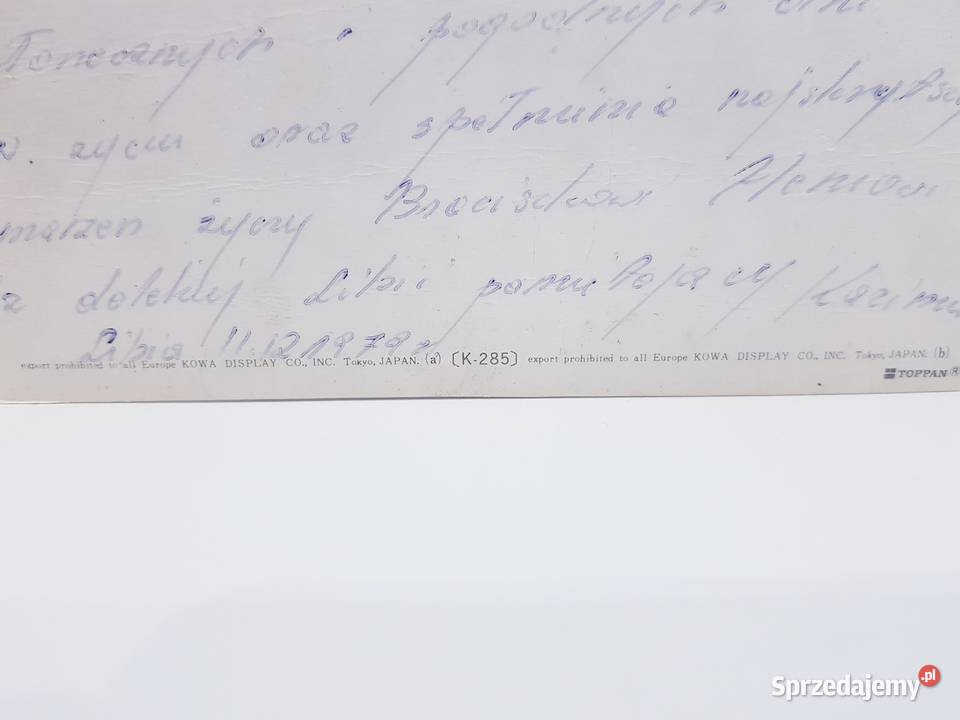 słonecznych i pogodnych dni
w życiu oraz spełnienia
marzeń życzy Braciszkowi
z dalekiej Libii pamiętający
Libia 11.12 1979 r
export prohibited to all Europe KOWA DISPLAY CO., INC. Tokyo, JAPAN. (a) [K-285] export prohibited to all Europe KOWA DISPLAY CO., INC. Tokyo, JAPAN. (b)
TOPPAN®
Sprzedajemy.pl